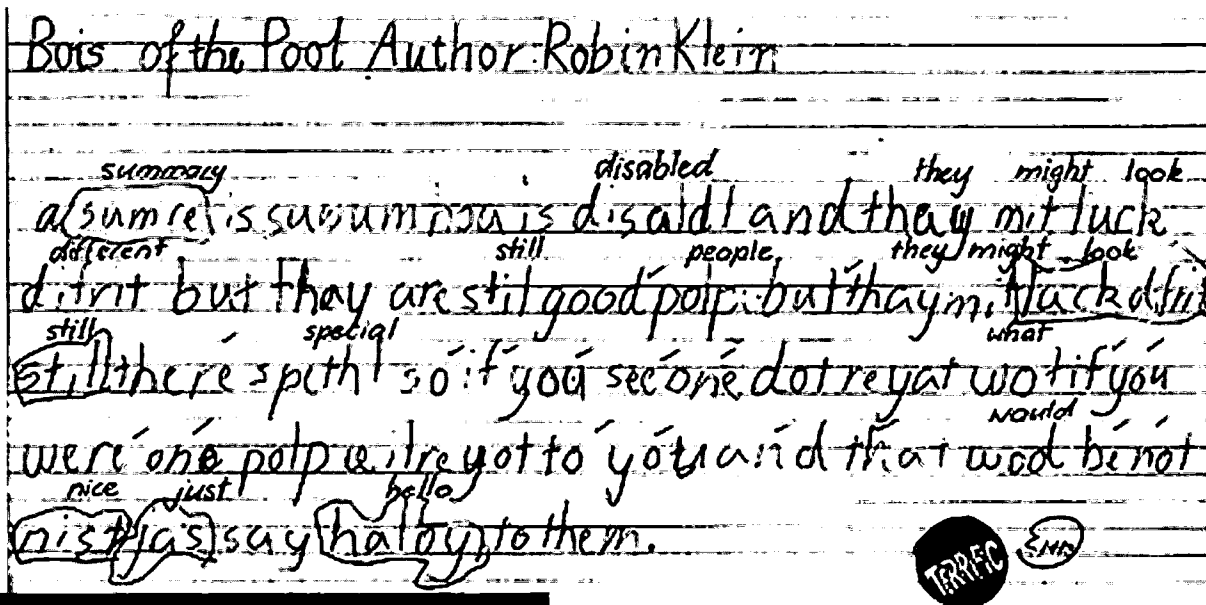 Bois of the Pool Author: Robin Klein
summary disabled they might look
a sumre is is disaldl and thay mit luck
different still people they might look
ditrit but thay are stil good polp. but thay mit luck difrit
still special what
still there speth so if you see one dot reyat wot if you
would
were one polp reyot to you and that wod be not
nice just hello
nist jas say haloy to them.
TERRIFIC